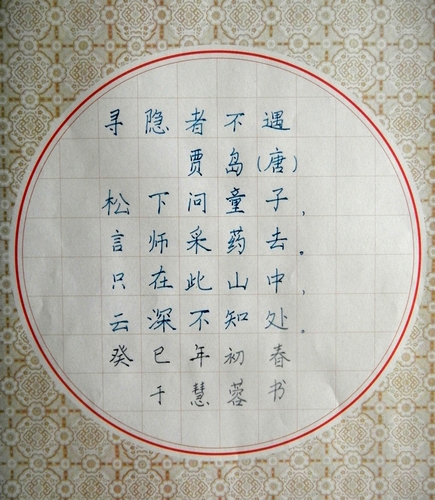 寻隐者不遇
贾岛(唐)
松下问童子，
言师采药去。
只在此山中，
云深不知处。
癸巳年初春
于慧蓉书